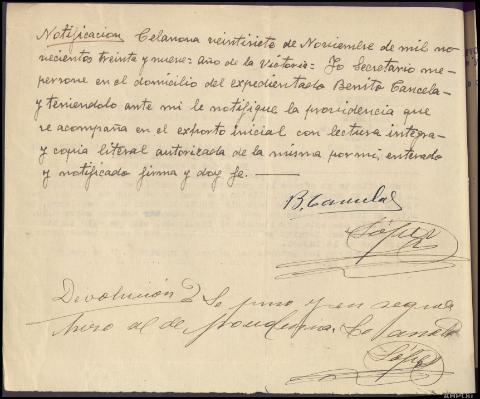 Notificacion Celanova veintisiete de Noviembre de mil no-
vecientos treinta y nueve= año de la Victoria= Yo Secretario me-
persone en el domicilio del expedientado Benito Cancela-
y teniendolo ante mi le notifique la providencia que
se acompaña en el exhorto inicial con lectura integra-
y copia literal autorizada de la misma por mi, enterado
y notificado firma y doy fe. —
B. Cancela
López
Devolución Se puso y en seguida
de
López